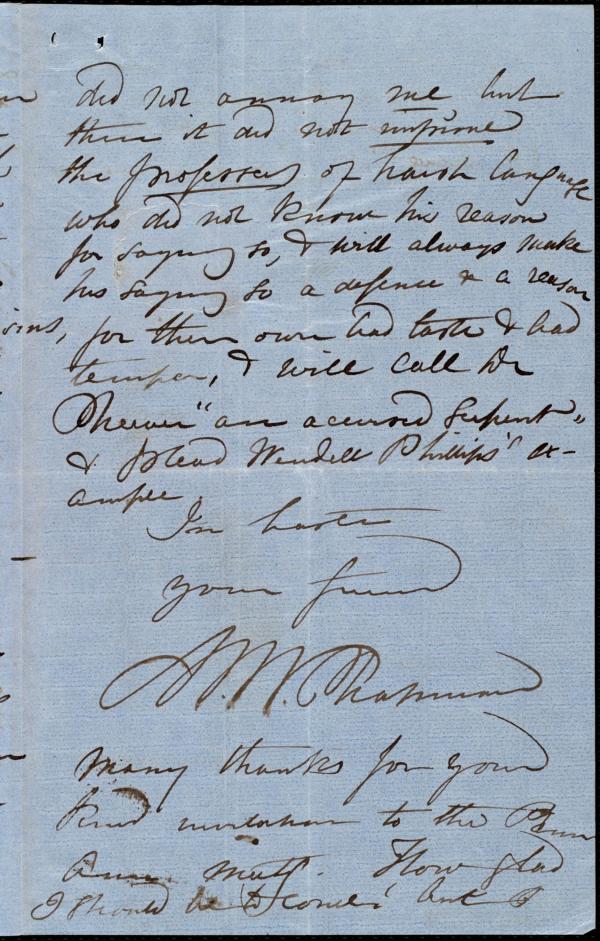 did not annoy me but
then it did not
the professors of harsh language
who did not know his reason
for saying so, & will always make
his saying so a defence & a reason
for their own bad taste & bad
temper, & will call Dr
Cheever "an accursed Serpent"
& plead Wendell Phillips' ex-
ample
In haste
your friend
M. W. Chapman
Many thanks for your
kind invitation to the Penn
Ann. Meetg. How glad
I should be to come! but I